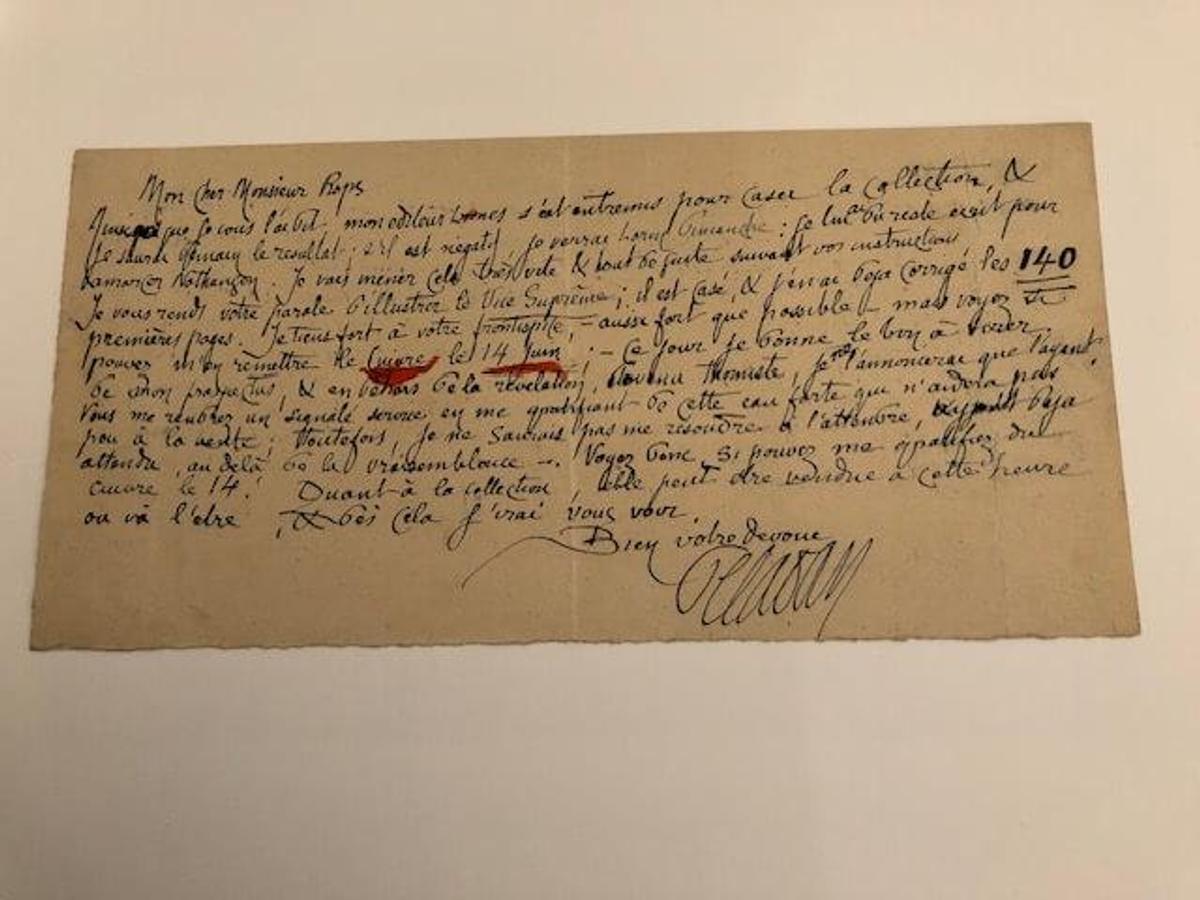 Mon Cher Monsieur Rops
Ainsi que je vous l'ai dit, mon editeur s'est entremis pour caser la collection, &
je saurai demain le resultat ; s'il est négatif, je verrai dimanche : je lui ai du reste écrit pour
. Je vais mener cela très vite & tout de suite suivant vos instructions
Je vous rends votre parole d'illustrer le Vice Suprême ; il est casé, & j'en ai deja corrigé les 140
premières pages. Je tiens fort à votre frontispice, – aussi fort que possible – mais voyez si
pouvez m'en remettre le Cuivre le 14 Juin ; – Ce jour je donne le bon à tirer.
de mon prospectus, & en dehors de la révélation, , je ne l'annoncerai que l'ayant.
Vous me rendrez un signalé service en me gratifiant de cette eau forte qui n'aidera pas
peu à la vente ; toutefois, je ne saurais pas me résoudre à l'attendre, ayant deja
attendu, au delà de la vraisemblance –. Voyez donc si pouvez me gratifier du
cuivre le 14 ! Quant à la collection, elle peut être vendue à cette heure
ou va l'être, & dès cela j'irai vous voir.
Bien votre devoué
Peladan